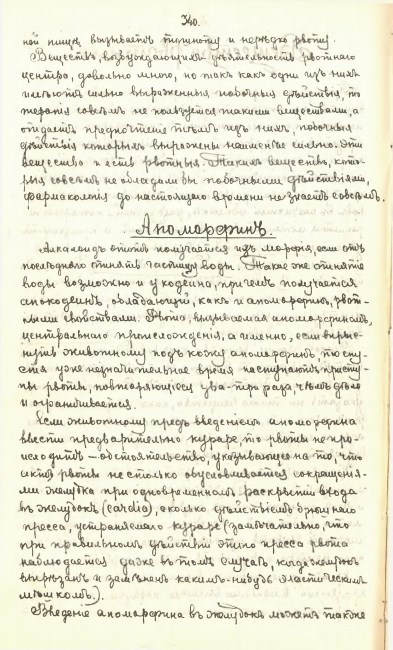 340.
ной пищи, вызывает тошноту и нередко рвоту.
Веществъ, возбуждающихъ дѣятельность рвотнаго
центра, довольно много, но такъ какъ одни изъ нихъ
имѣютъ сильно выраженныя побочныя дѣйствія, то
терапія совсѣмъ не пользуется такими веществами, а
отдаетъ предпочтеніе тѣмъ изъ нихъ, побочныя
дѣйствія которыхъ выражены наименѣе сильно. Эти
вещества и есть рвотныя. Такихъ веществъ, кото-
рыя совсѣмъ не обладали бы побочными дѣйствіями,
фармакологія до настоящаго времени не знаетъ совсѣмъ.
Апоморфинъ.
Алкалоидъ этотъ получается изъ морфія, если отъ
послѣдняго отнять частицу воды. Такое же отнятіе
воды возможно и у кодеина, при чемъ получается
апокодеинъ, обладающій, какъ и апоморфинъ, рвот-
ными свойствами. Рвота, вызываемая апоморфиномъ,
центральнаго происхожденія, а именно, если впрыс-
нуть животному подъ кожу апоморфинъ, то спу-
стя уже незначительное время наступаютъ присту-
пы рвоты, повторяющіеся два-три раза чѣмъ дѣло
и ограничивается.
Если животному предъ введеніемъ апоморфина
ввести предварительно кураре, то рвоты не про-
исходитъ – обстоятельство, указывающее на то, что
актъ рвоты не столько обусловливается сокращенія-
ми желудка при одновременномъ раскрытіи входа
въ желудокъ (cardia), сколько дѣйствіемъ брюшного
пресса, устраняемаго кураре (замѣчательно, что
при правильномъ дѣйствіи этого пресса рвота
наблюдается даже въ томъ случаѣ, когда желудокъ
вырѣзанъ и замѣненъ какимъ-нибудь эластическимъ
мѣшкомъ.).
Введеніе апоморфина въ желудокъ можетъ также